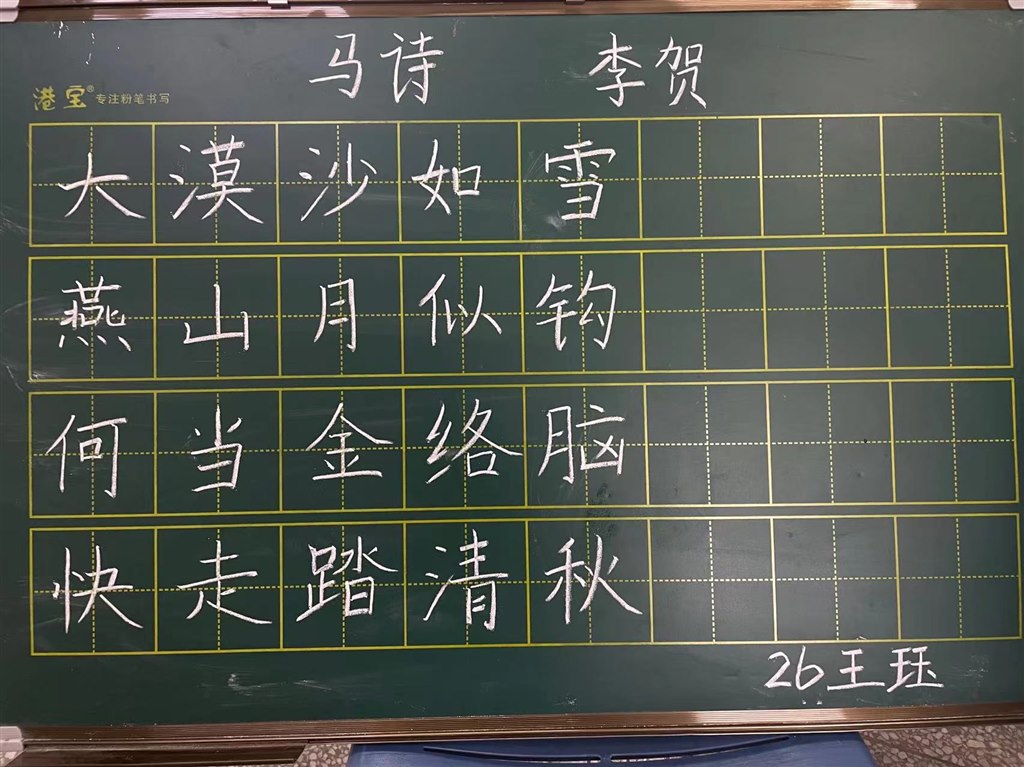 马诗 李贺
港宝® 专注粉笔书写
大漠沙如雪
燕山月似钩
何当金络脑
快走踏清秋
26王珏